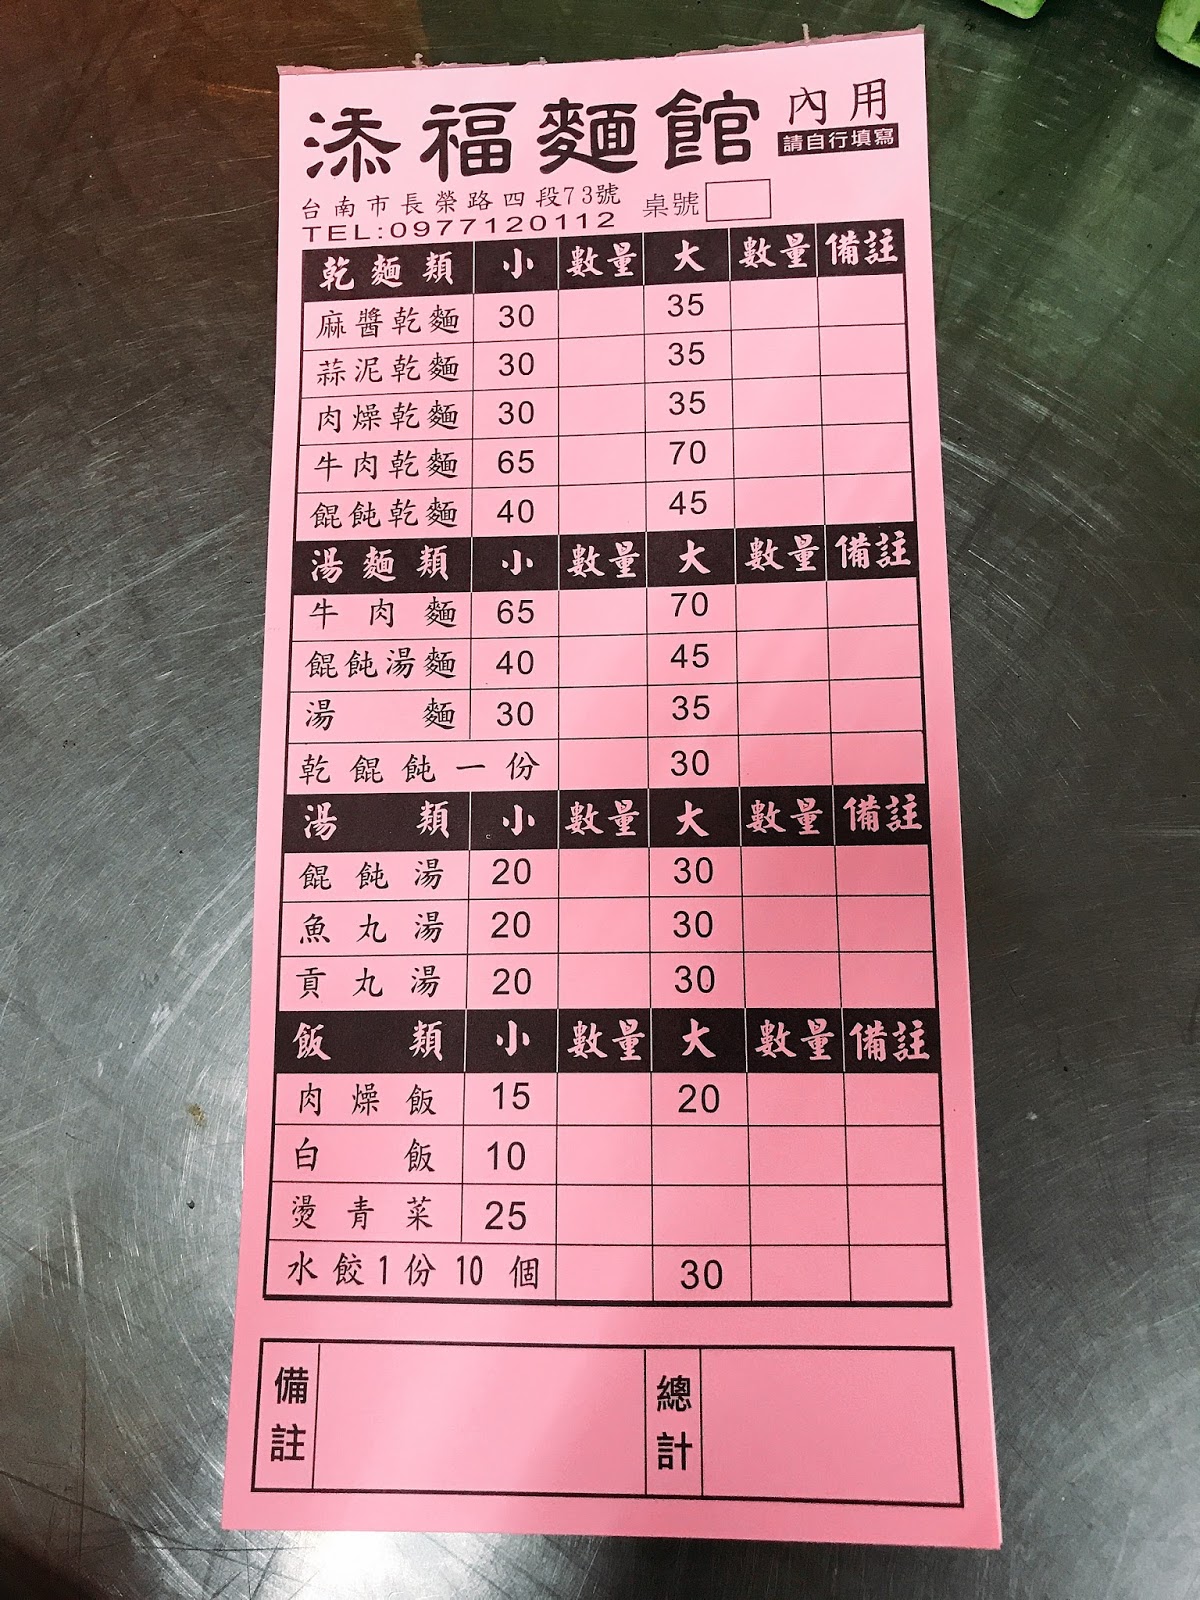 添福麵館 內用
請自行填寫
台南市長榮路四段73號 桌號
TEL:0977120112
乾麵類 小 數量 大 數量 備註
麻醬乾麵 30 35
蒜泥乾麵 30 35
肉燥乾麵 30 35
牛肉乾麵 65 70
餛飩乾麵 40 45
湯麵類 小 數量 大 數量 備註
牛肉麵 65 70
餛飩湯麵 40 45
湯麵 30 35
乾餛飩一份 30
湯類 小 數量 大 數量 備註
餛飩湯 20 30
魚丸湯 20 30
貢丸湯 20 30
飯類 小 數量 大 數量 備註
肉燥飯 15 20
白飯 10
燙青菜 25
水餃1份10個 30
備註 總計